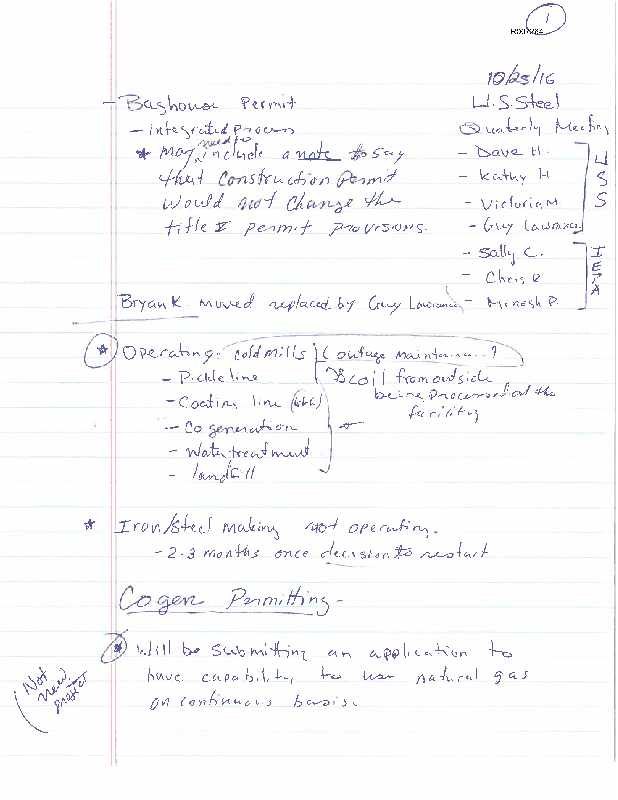 1
R001284
10/25/16
- Baghouse Permit
U.S. Steel
- integrated process
Quarterly Meeting
* May need to include a note to say
that Construction Permit
would not change the
title V permit provisions.
- Dave H.
- Kathy H
- Victoria M.
- Guy Lawrance
USS
- Sally C.
- Chris R
- Manish P.
IEPA
Bryan K. moved replaced by Guy Lawrance
* Operating: cold mills (outage maintenance?)
- Pickle line
coil from outside
being processed at the
facility
- Coating line
- Co generation
- Water treatment
- landfill
* Iron/Steel making not operating.
- 2-3 months once decision to restart
Cogen Permitting -
* Will be submitting an application to
have capability to use natural gas
on continuous basis.
(Not
new
project